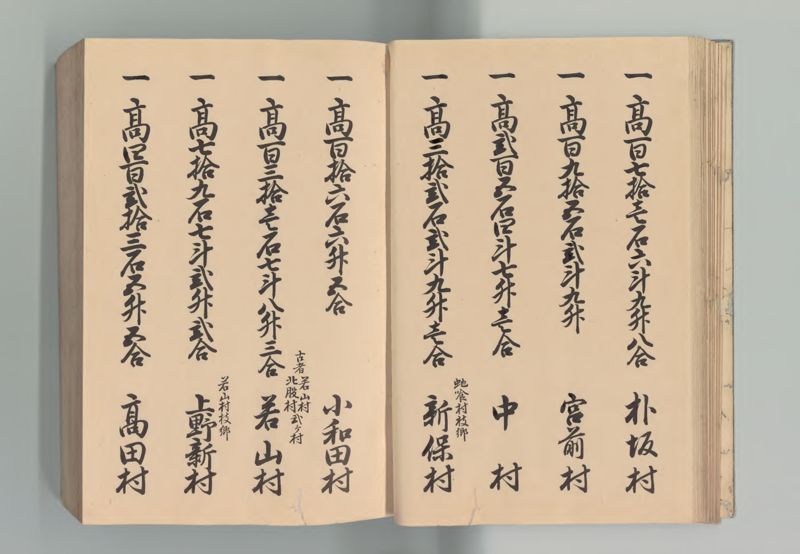 一 高百七拾壱石六斗九升八合 朴坂村
一 高百九拾五石弐斗九升 宮前村
一 高弐百五石四斗七升壱合 中村
蛇喰村枝郷
一 高三拾弐石弐斗九升壱合 新保村
一 高百拾六石六升五合 小和田村
古者 若山村 北股村 弐ヶ村
一 高百三拾壱石七斗八升三合 若山村
若山村枝郷
一 高七拾九石七斗弐升弐合 上野新村
一 高四百弐拾三石五升五合 高田村